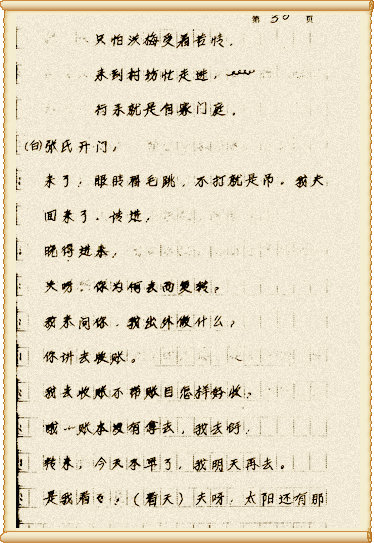 第 30 页
只怕洪梅受着苦情，
来到村坊忙走进，
行来就是自家门庭。
(白)张氏开门，
来了，眼肢眉毛跳，不打就是吊。我夫
回来了。请进，
晓得进来，
夫呀，你为何去而复转。
我来问你，我出外做什么，
你讲去收账。
我去收账不带账目怎样好收。
哦，账本没有拿去，我去
转来，今天不早了，我明天再去。
是我看看，(看天)夫呀，太阳还有那